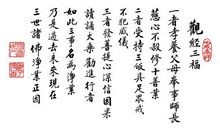 觀經三福
一者孝養父母奉事師長
慈心不殺修十善業
二者受持三皈具足眾戒
不犯威儀
三者發菩提心深信因果
讀誦大乘勸進行者
如此三事名為淨業
乃是過去未來現在
三世諸佛淨業正因